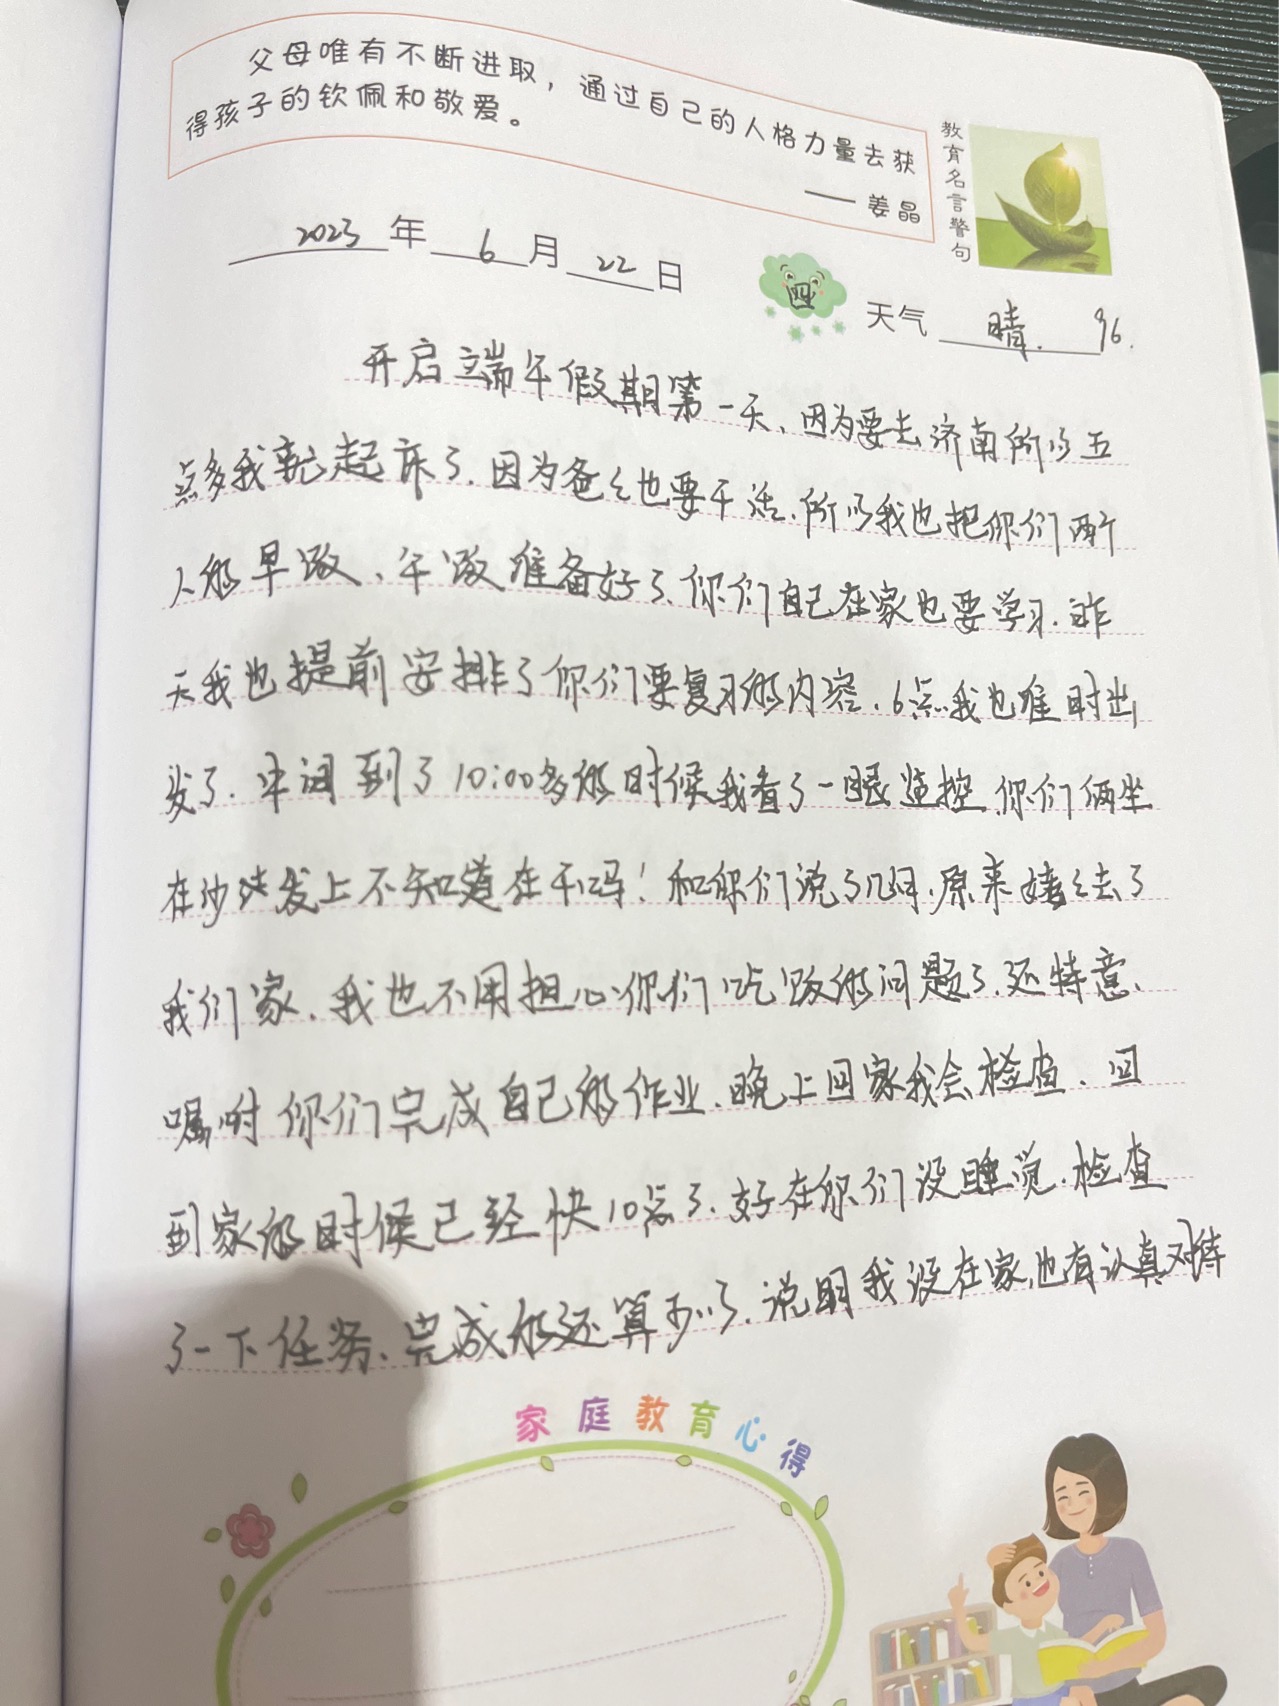 父母唯有不断进取，通过自己的人格力量去获
得孩子的钦佩和敬爱。
——姜晶
教育名言警句
2023年6月22日
四
天气 晴. 96.
开启端午假期第一天、因为要去济南所以五
点多我就起床了.因为爸爸也要干活、所以我也把你们两个
人的早饭、午饭准备好了、你们自己在家也要学习.昨
天我也提前安排了你们要复习的内容.6点我也准时出
发了.中间到了10:00多的时候我看了一眼监控.你们俩坐
在沙发上不知道在干吗!和你们说了几句.原来姨姨去了
我们家.我也不用担心你们吃饭的问题了.还特意、
嘱咐你们完成自己的作业.晚上回家我会检查.回
到家的时候已经快10点了.好在你们没睡觉.检查
了一下任务、完成的还算可以了.说明我没在家也有认真对待
家庭教育心得